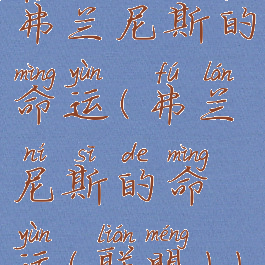 弗兰尼斯的
mìng yùn fú lán
命运(弗兰
ní sī de mìng
尼斯的命
yùn lián méng
运(联盟))